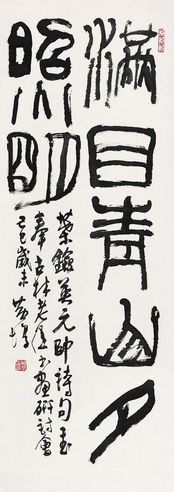 滿目青山夕
照明
葉劍英元帥詩句
奉吉林老書畫研討會
己巳歲末 黃